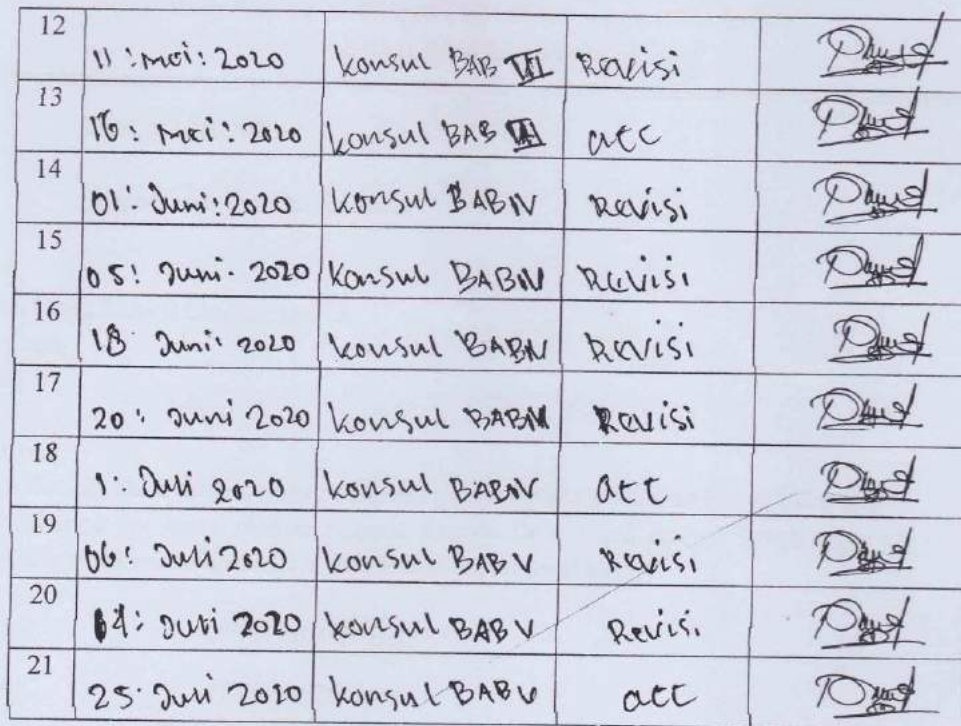 12
11 : mei : 2020 konsul BAB III Revisi
13
16 : mei : 2020 konsul BAB III acc
14
01 : Juni : 2020 konsul BAB IV Revisi
15
05 : Juni · 2020 konsul BAB IV Revisi
16
18 Juni : 2020 konsul BAB IV Revisi
17
20 : Juni 2020 konsul BAB IV Revisi
18
1 : Juli 2020 konsul BAB IV acc
19
06 : Juli 2020 konsul BAB V Revisi
20
14 : Juli 2020 konsul BAB V Revisi
21
25 · Juli 2020 konsul BAB V acc